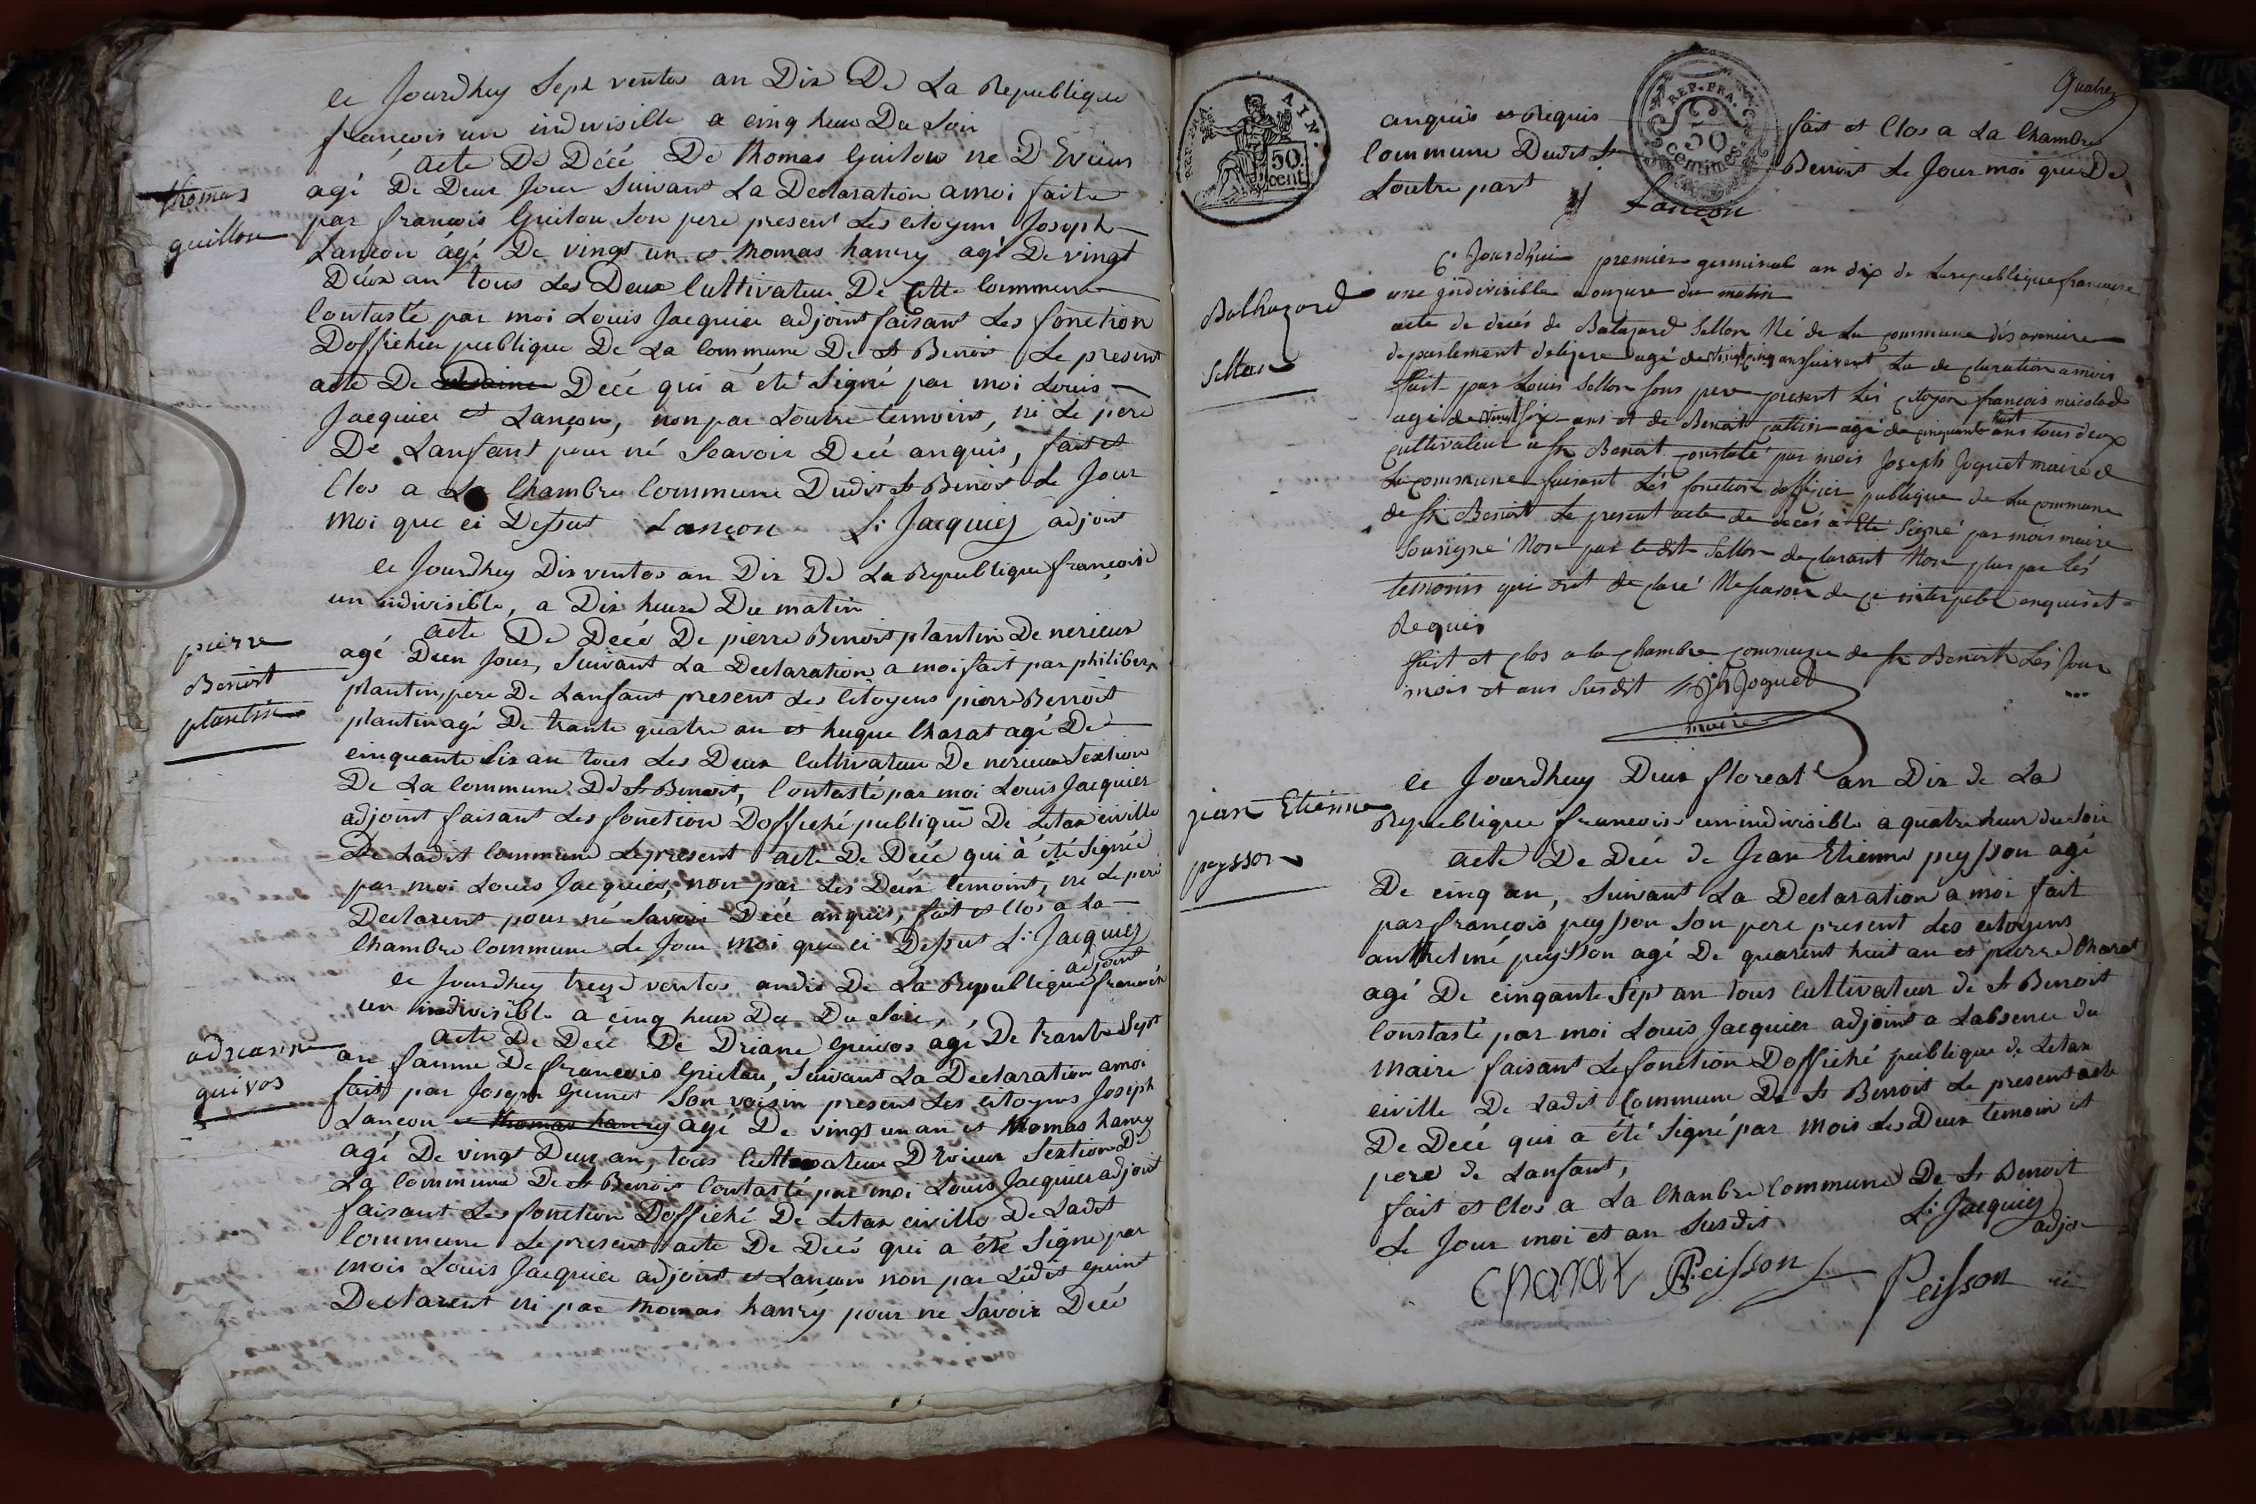 ce Jourdhuy Sept ventos an Dix De La Republique
francois un indivisible a cinq heur Du Soir
acte De Décé De thomas Guilou ne D Evieux
thomas
guillon
agé De Deux Jour Suivant La Declaration a moi faite
par francois Guilou Son pere present Les citoyens Joseph
Lançon agé De vingt un et thomas hanry agé De vingt
Deux an tous Les Deux Cultivateur De Cette Commune
Contasté par moi Louis Jacquier adjoint faisant Les fonction
Dofficier publique De La Commune De St Benoit Le present
acte De Décé qui a été Signé par moi Louis
Jacquier et Lançon, non par Loutre temoint, ni Le pere
De Lanfant pour né Scavoir Decé anquis, fait et
Clos a La Chambre Commune Dudit St Benoit Le Jour
moi que ci Dessus Lançon Ls Jacquier adjoint
ce Jourdhuy Dix ventos an Dix De La Republique françoise
un indivisible, a Dix heure Du matin
pierre
Benoit
plantin
acte De Decé De pierre Benoit plantin De nerieux
agé Dun Jour, Suivant La Declaration a moi fait par philibert
plantin, pere De Lanfant present Les Citoyens pierre Benoit
plantin agé De trante quatre an et hugue Charat agé De
cinquante Six an tous Les Deux Cultivateur De nerieux Sextion
De La Commune De St Benoit, Contasté par moi Louis Jacquier
adjoint faisant Les fonction Doffiché publique De Letax civille
De Ladit Commune Le present acte De Décé qui à été Signé
par moi Louis Jacquier, non par Les Deux temoint, ni Le peré
Declarent pour né Savoir Décé anquis, fait et Clos a La
Chambre Commune Le Jour moi que ci Dessus Ls Jacquier
adjoint
ce Jourdhuy treze ventos andix De La Republique francoise
un indivisible a cinq heur Du Du Soir,
adrianne
guivos
acte De Decé De Driane Guivos agé De trante Sept
an famme De francois Guilau, Suivant La Declaration a moi
fait par Joseph Guinet Son voisin present Les citoyens Joseph
Lançon et thomas hanry agé De vingt un an et thomas hanry
agé De vingt Deux an, tous Cultivateur D Evieux Sextion De
La Commune De St Benoit Contasté par moi Louis Jacquier adjoint
faisant Les fonction Dofficié De Letax civille De Ladit
Commune Le present acte De Décé qui a été Signé par
mois Louis Jacquier adjoint et Lançon non par Ledit guint
Declarent ni par thomas hanry pour ne Savoir Décé
AIN.
REP. FRA.
50.
cent.
REP. FRA.
50
centimes
Quatre
anquis et Requis fait et Clos a La Chambre
Commune Dudit St Benoit Le Jour moi que De
Loutre part
Lançon
Balthazard
Sellon
Ce Jourdhuie premier germinal an dix de La republique francaise
une indivisible a onzure du matin
acte de decés de Batazard Sellon Né de La commune
departement agé de vingt cinq ans suivent La declaration a mois
fait par Louis Sellon Sons pere present Lés citoyen françois micolod
agé de vingt six ans et de Benoit cattin agé de cinquante huit ans tous deux
cultivateur a St Benoit constaté par mois Joseph Joguet maire de
La commune faisant Lés fonction dofficier publique de La commune
de St Benoit Le present acte de decés a Eté Signé par mois maire
Sousigné Non par le dit Sellon declarant Non plus par Lés
temoins qui ont declaré Ne savoir de ce interpelé enquis et
Requis
fait et clos a la chambre commune de St Benoit Lés Jour
mois et ans susdit Jh Joguet
maire
jean Etienne
peysson
ce Jourdhuy Deux floreal an Dix de La
Republique francoise un indivisible a quatre heur du Soir
acte De Décé de Jean Etienne peysson agé
De cinq an, Suivant La Declaration a moi fait
par françois peysson Son pere present Les citoyens
anthelmé peysson agé De quarent huit an et pierre Charat
agé De cinqante Sept an tous Cultivateur de St Benoit
Constaté par moi Louis Jacquier adjoint a Labsence du
Maire faisant Le fonction Dofficié publique de Letax
civille De Ladit Commune De St Benoit Le present acte
De Décé qui a été Signé par mois Les Deux temoin et
pere de Lanfant,
fait et Clos a La Chanbre Commune De St Benoit
Le Jour moi et an Susdit Ls Jacquier
adjoint
Charat A Peisson Peisson